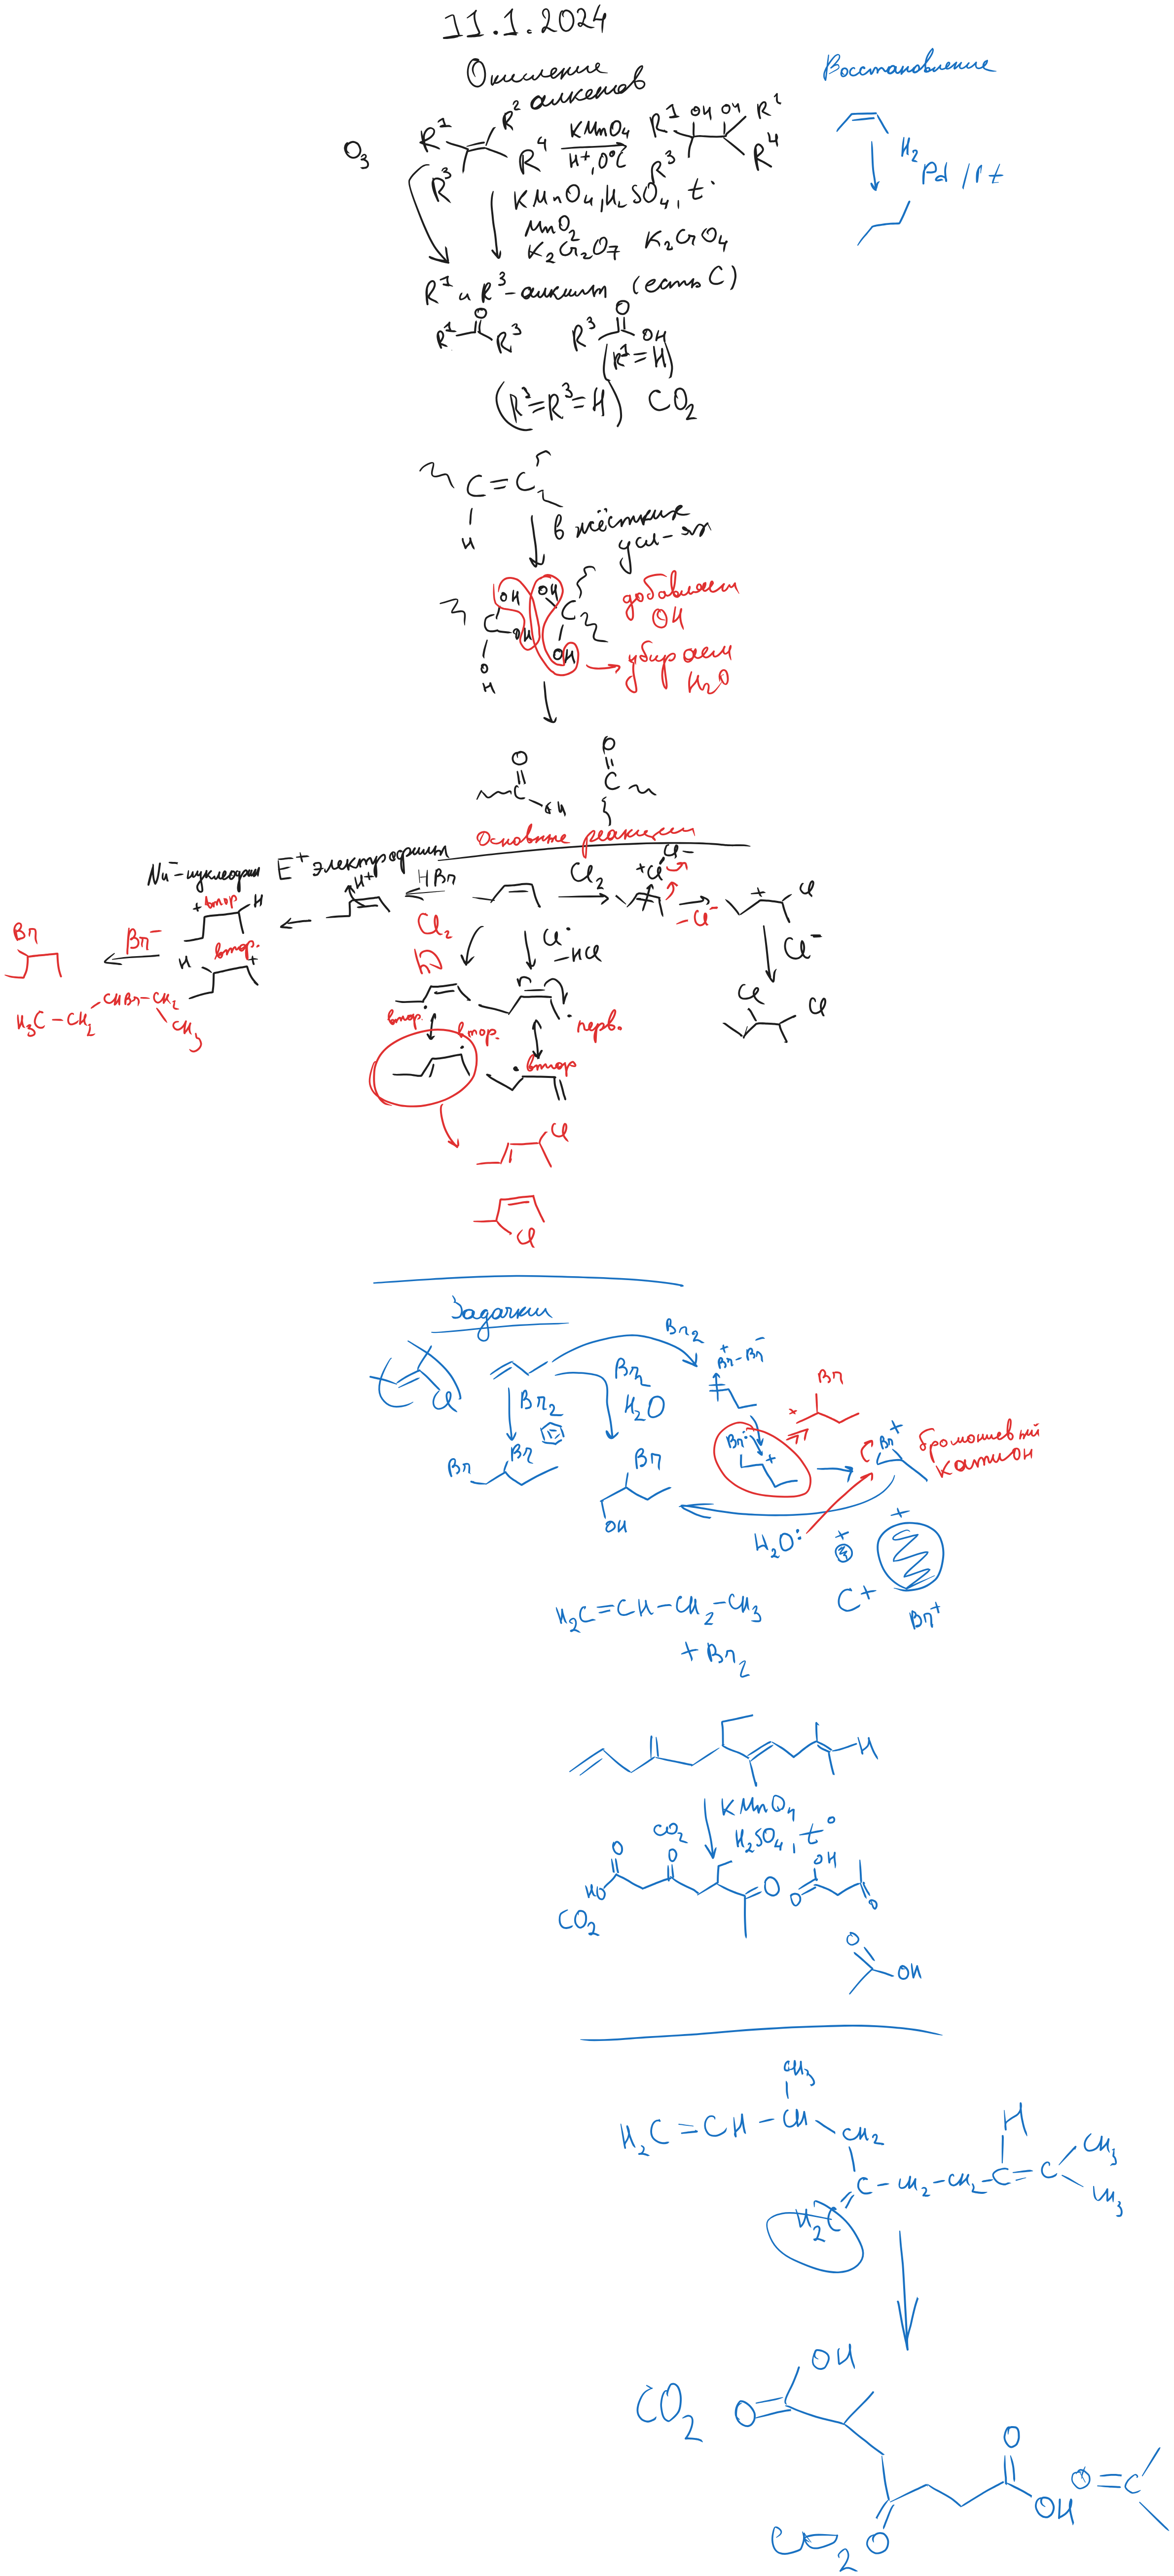 11.1.2024
Окисление
алкенов
Восстановление
O3
R1 R2 R3 R4
KMnO4
H+, 0°C
R1 OH OH R2
R3 R4
H2
Pd / Pt
KMnO4, H2SO4, t°
MnO2
K2Cr2O7 K2CrO4
R1 и R3 - алкилы (есть C)
R1 O R3
R3 O OH
(R1 = H)
(R1=R3=H) CO2
C = C
H
в жёстких
усл-ях
OH OH
C OH C
O OH
H
добавляем
OH
убираем
H2O
O O
C C
OH
Основные реакции
Nu- - нуклеофил E+ электрофилы
H+
HBr
Cl2
+Cl Cl-
-Cl-
+ Cl
Cl-
Cl Cl
+ втор. H
Br-
Br
H втор. +
H3C - CH2 - CHBr - CH2 - CH3
Cl2
hν
Cl·
-HCl
втор. втор.
перв.
втор
Cl
Cl
Задачки
Cl
Br2
Br2
H2O
Br2
Br+-Br-
Br
+
Br Br
Br
OH
Br: +
Br+
бромониевый
катион
H2O:
+ +
C+
Br+
H2C=CH-CH2-CH3
+ Br2
H
KMnO4
H2SO4, t°
CO2
O O
HO O
OH
O O
CO2
O
OH
CH3
H2C = CH - CH CH2
H
C - CH2 - CH2 - C = C CH3
CH3
H2C
OH
CO2 O
O
OH O = C
CO2 O